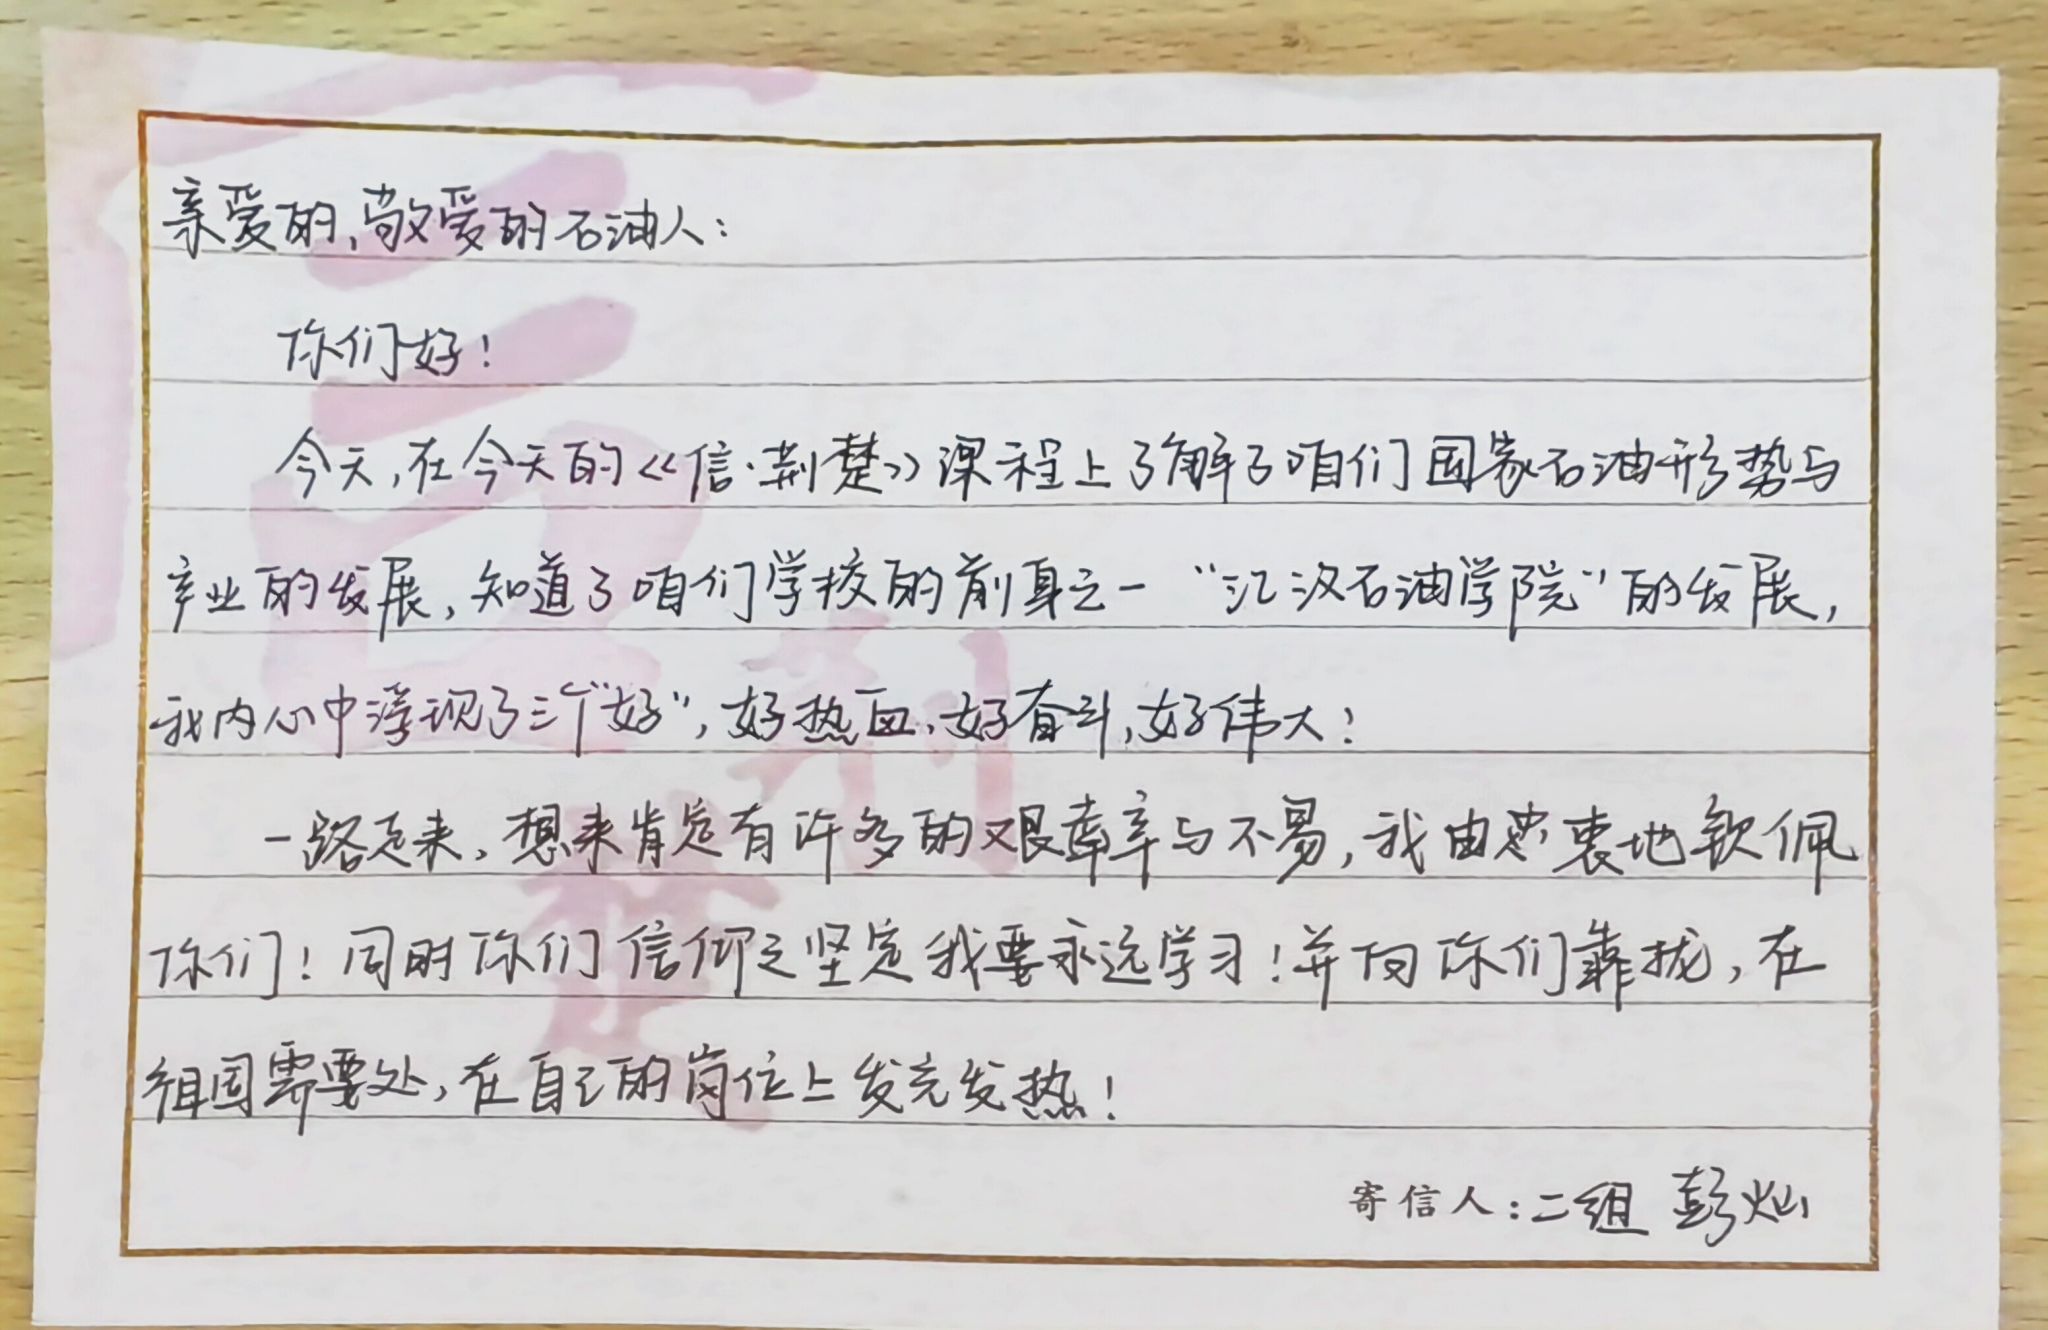 亲爱的,敬爱的石油人:
你们好!
今天,在今天的《信·荆楚》课程上了解了咱们国家石油形势与
产业的发展,知道了咱们学校的前身之一“江汉石油学院”的发展,
我内心中浮现了三个“好”,好热血,好奋斗,好伟大!
一路走来,想来肯定有许多的艰辛与不易,我由衷地钦佩
你们!同时你们信仰之坚定我要永远学习!并向你们靠拢,在
祖国需要处,在自己的岗位上发光发热!
寄信人:二组 彭灿
信
荆
楚